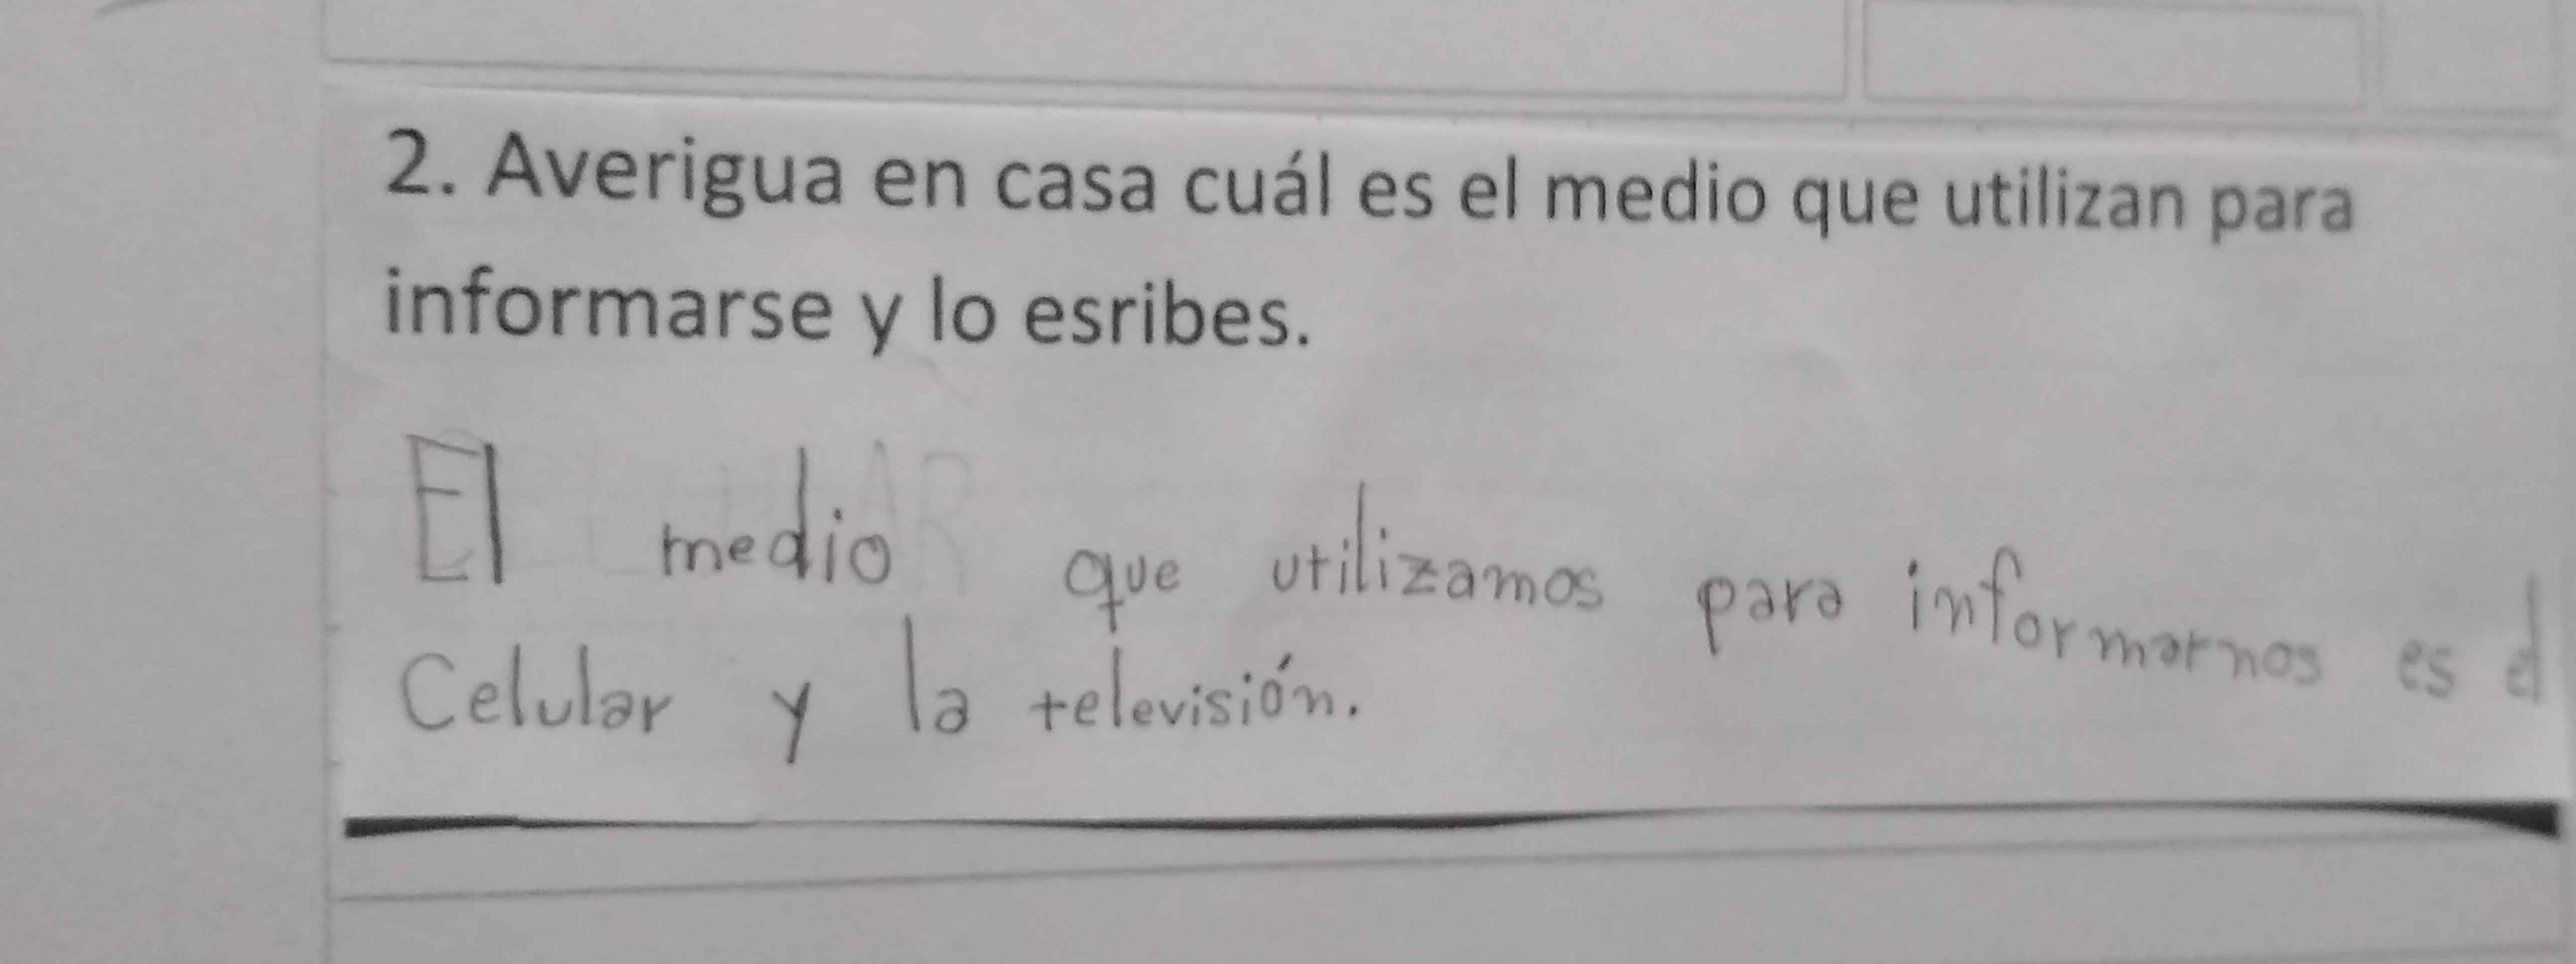 2. Averigua en casa cuál es el medio que utilizan para
informarse y lo esribes.
El medio que utilizamos para informarnos es el
Celular y la televisión.